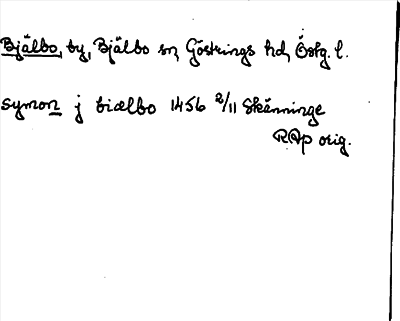 Bjälbo, by, Bjälbo sn, Göstrings hd, Östg. l.
symon j biælbo 1456 2/11 Skänninge
RAp orig.